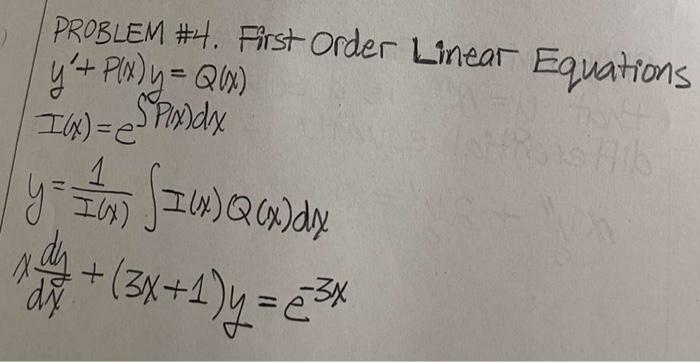 PROBLEM #4. First Order Linear Equations
y' + P(x)y = Q(x)
I(x) = e^∫P(x)dx
y = 1/I(x) ∫I(x)Q(x)dx
x dy/dx + (3x+1)y = e^-3x